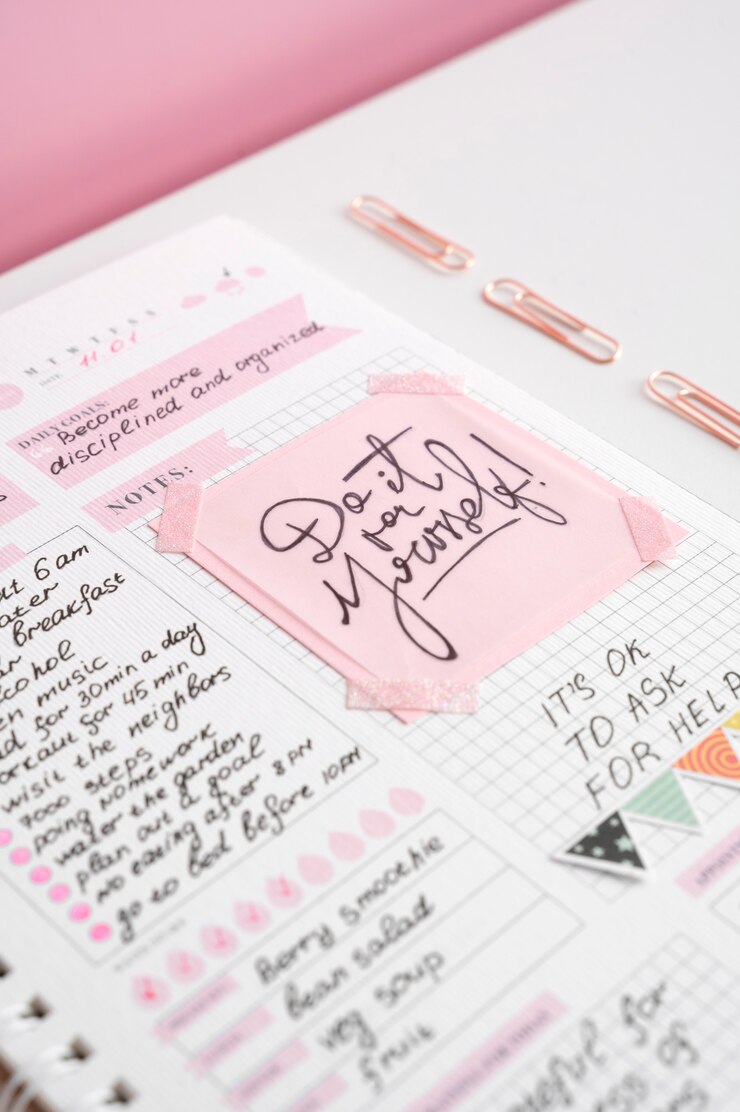 M T W T F S S
DATE: 11.01
DAILY GOALS:
Become more
disciplined and organized
NOTES:
Do it
for
Yourself!
6 am
breakfast
music
for 30min a day
for 45 min
wisit the neighbors
7000 steps
doing homework
water the garden
plan out a goal
no eating after 8 PM
go to bed before 10PM
IT'S OK
TO ASK
FOR HELP
Berry smoothie
bean salad
veg soup
fruit
for
of